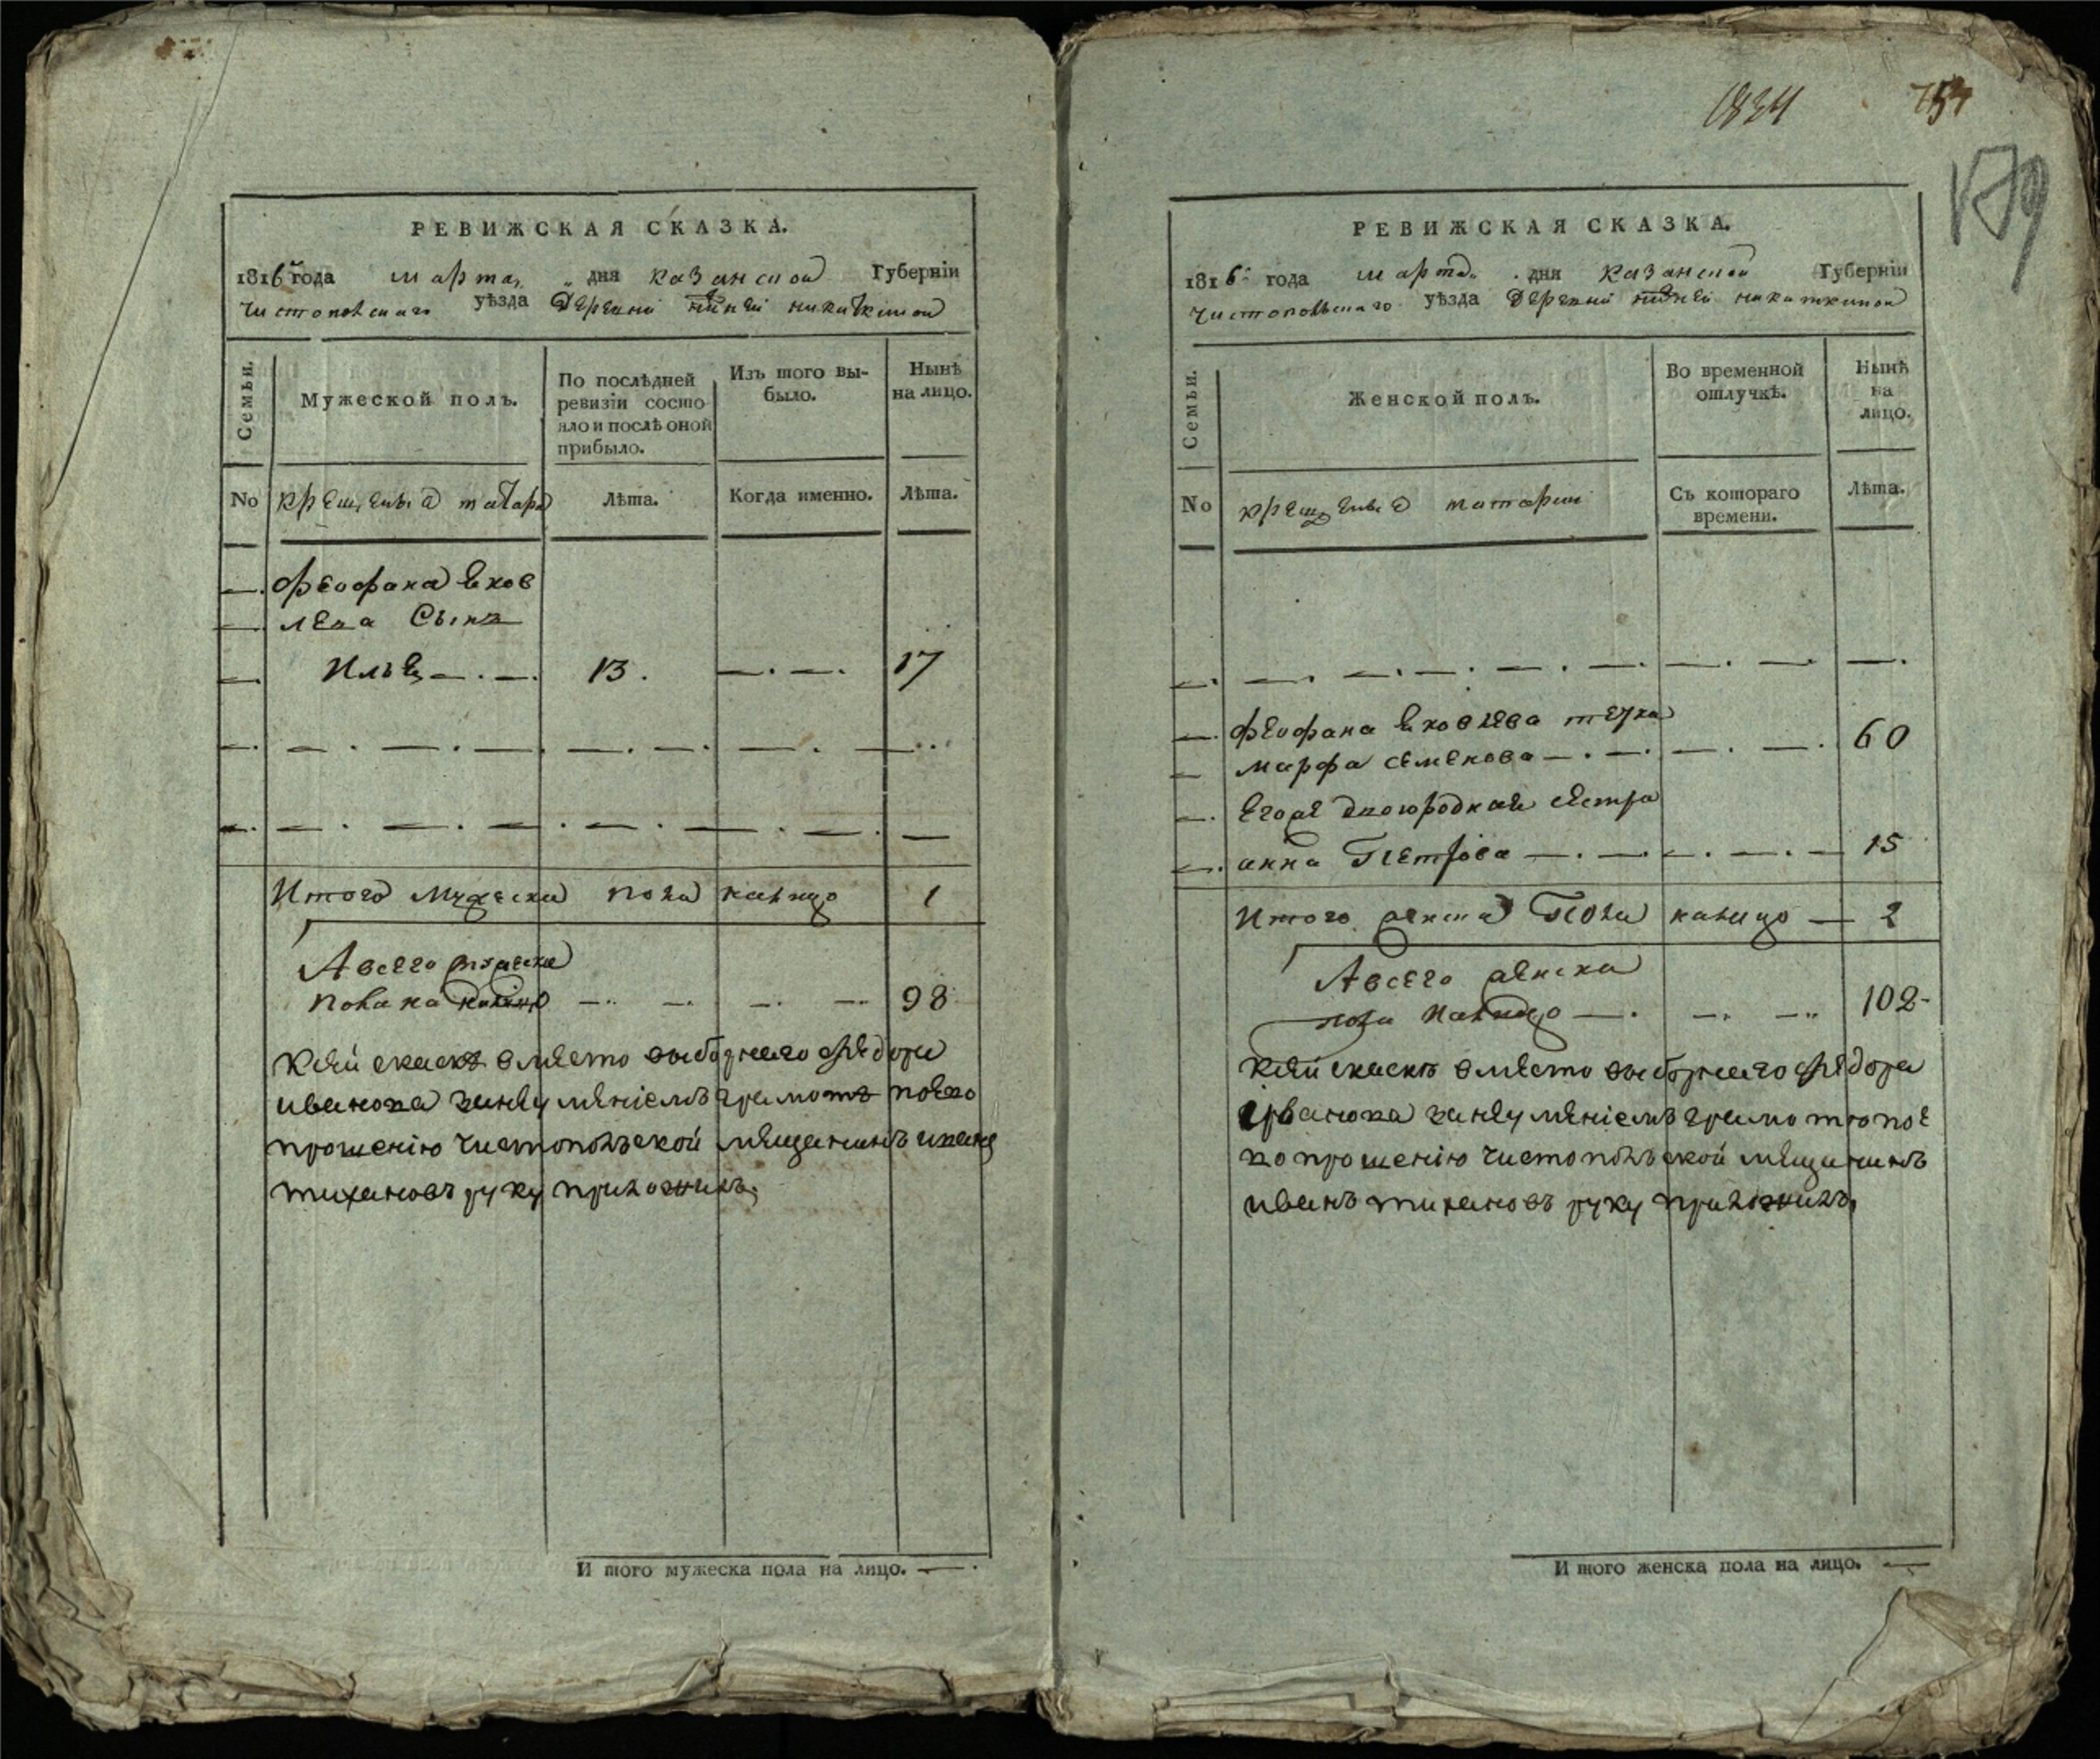 РЕВИЖСКАЯ СКАЗКА.
1816 года марта дня казанской Губерніи
чистопольскаго уѣзда Деревни нижней никиткиной
Семьи.
Мужеской полъ.
По послѣдней
ревизіи состо-
яло и послѣ оной
прибыло.
Изъ того вы-
было.
Нынѣ
на лицо.
No
крещеныя татара
Лѣта.
Когда именно.
Лѣта.
феофана яков
лева Сынъ
Илья 13. 17
Итого Мужеска пола налицо 1
А всего мужеска
пола на 98
Ксей скаске вместо выборнаго Федора
иванова занеумениемъ грамоте поево
прошенію чистопольской мещанинъ иванъ
тихановъ руку приложилъ
И того мужеска пола на лицо. —
1834
754
179
РЕВИЖСКАЯ СКАЗКА.
1816 года марта дня казанской Губерніи
чистопольскаго уѣзда Деревни нижней никиткиной
Семьи.
Женской полъ.
Во временной
отлучкѣ.
Нынѣ
на
лицо.
No
крещеныя татарки
Съ котораго
времени.
Лѣта.
феофана яковлева тетка
марфа семенова 60
Егоже двоюродная сестра
анна Петрова 15
Итого женска Пола налицо — 2
А всего женска
пола налицо 102
Ксей скаске вместо выборнаго Федора
иванова занеумениемъ грамоте пое
во прошенію чистопольской мещанинъ
иванъ тихановъ руку приложилъ
И того женска пола на лицо. —